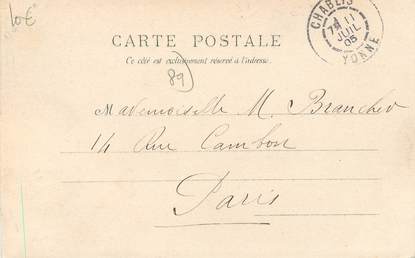 10€
CHABLIS
7E 11
JUIL
05
YONNE
CARTE POSTALE
Ce côté est exclusivement réservé à l'adresse.
89
Mademoiselle M. Branchev
14 Rue Cambon
Paris